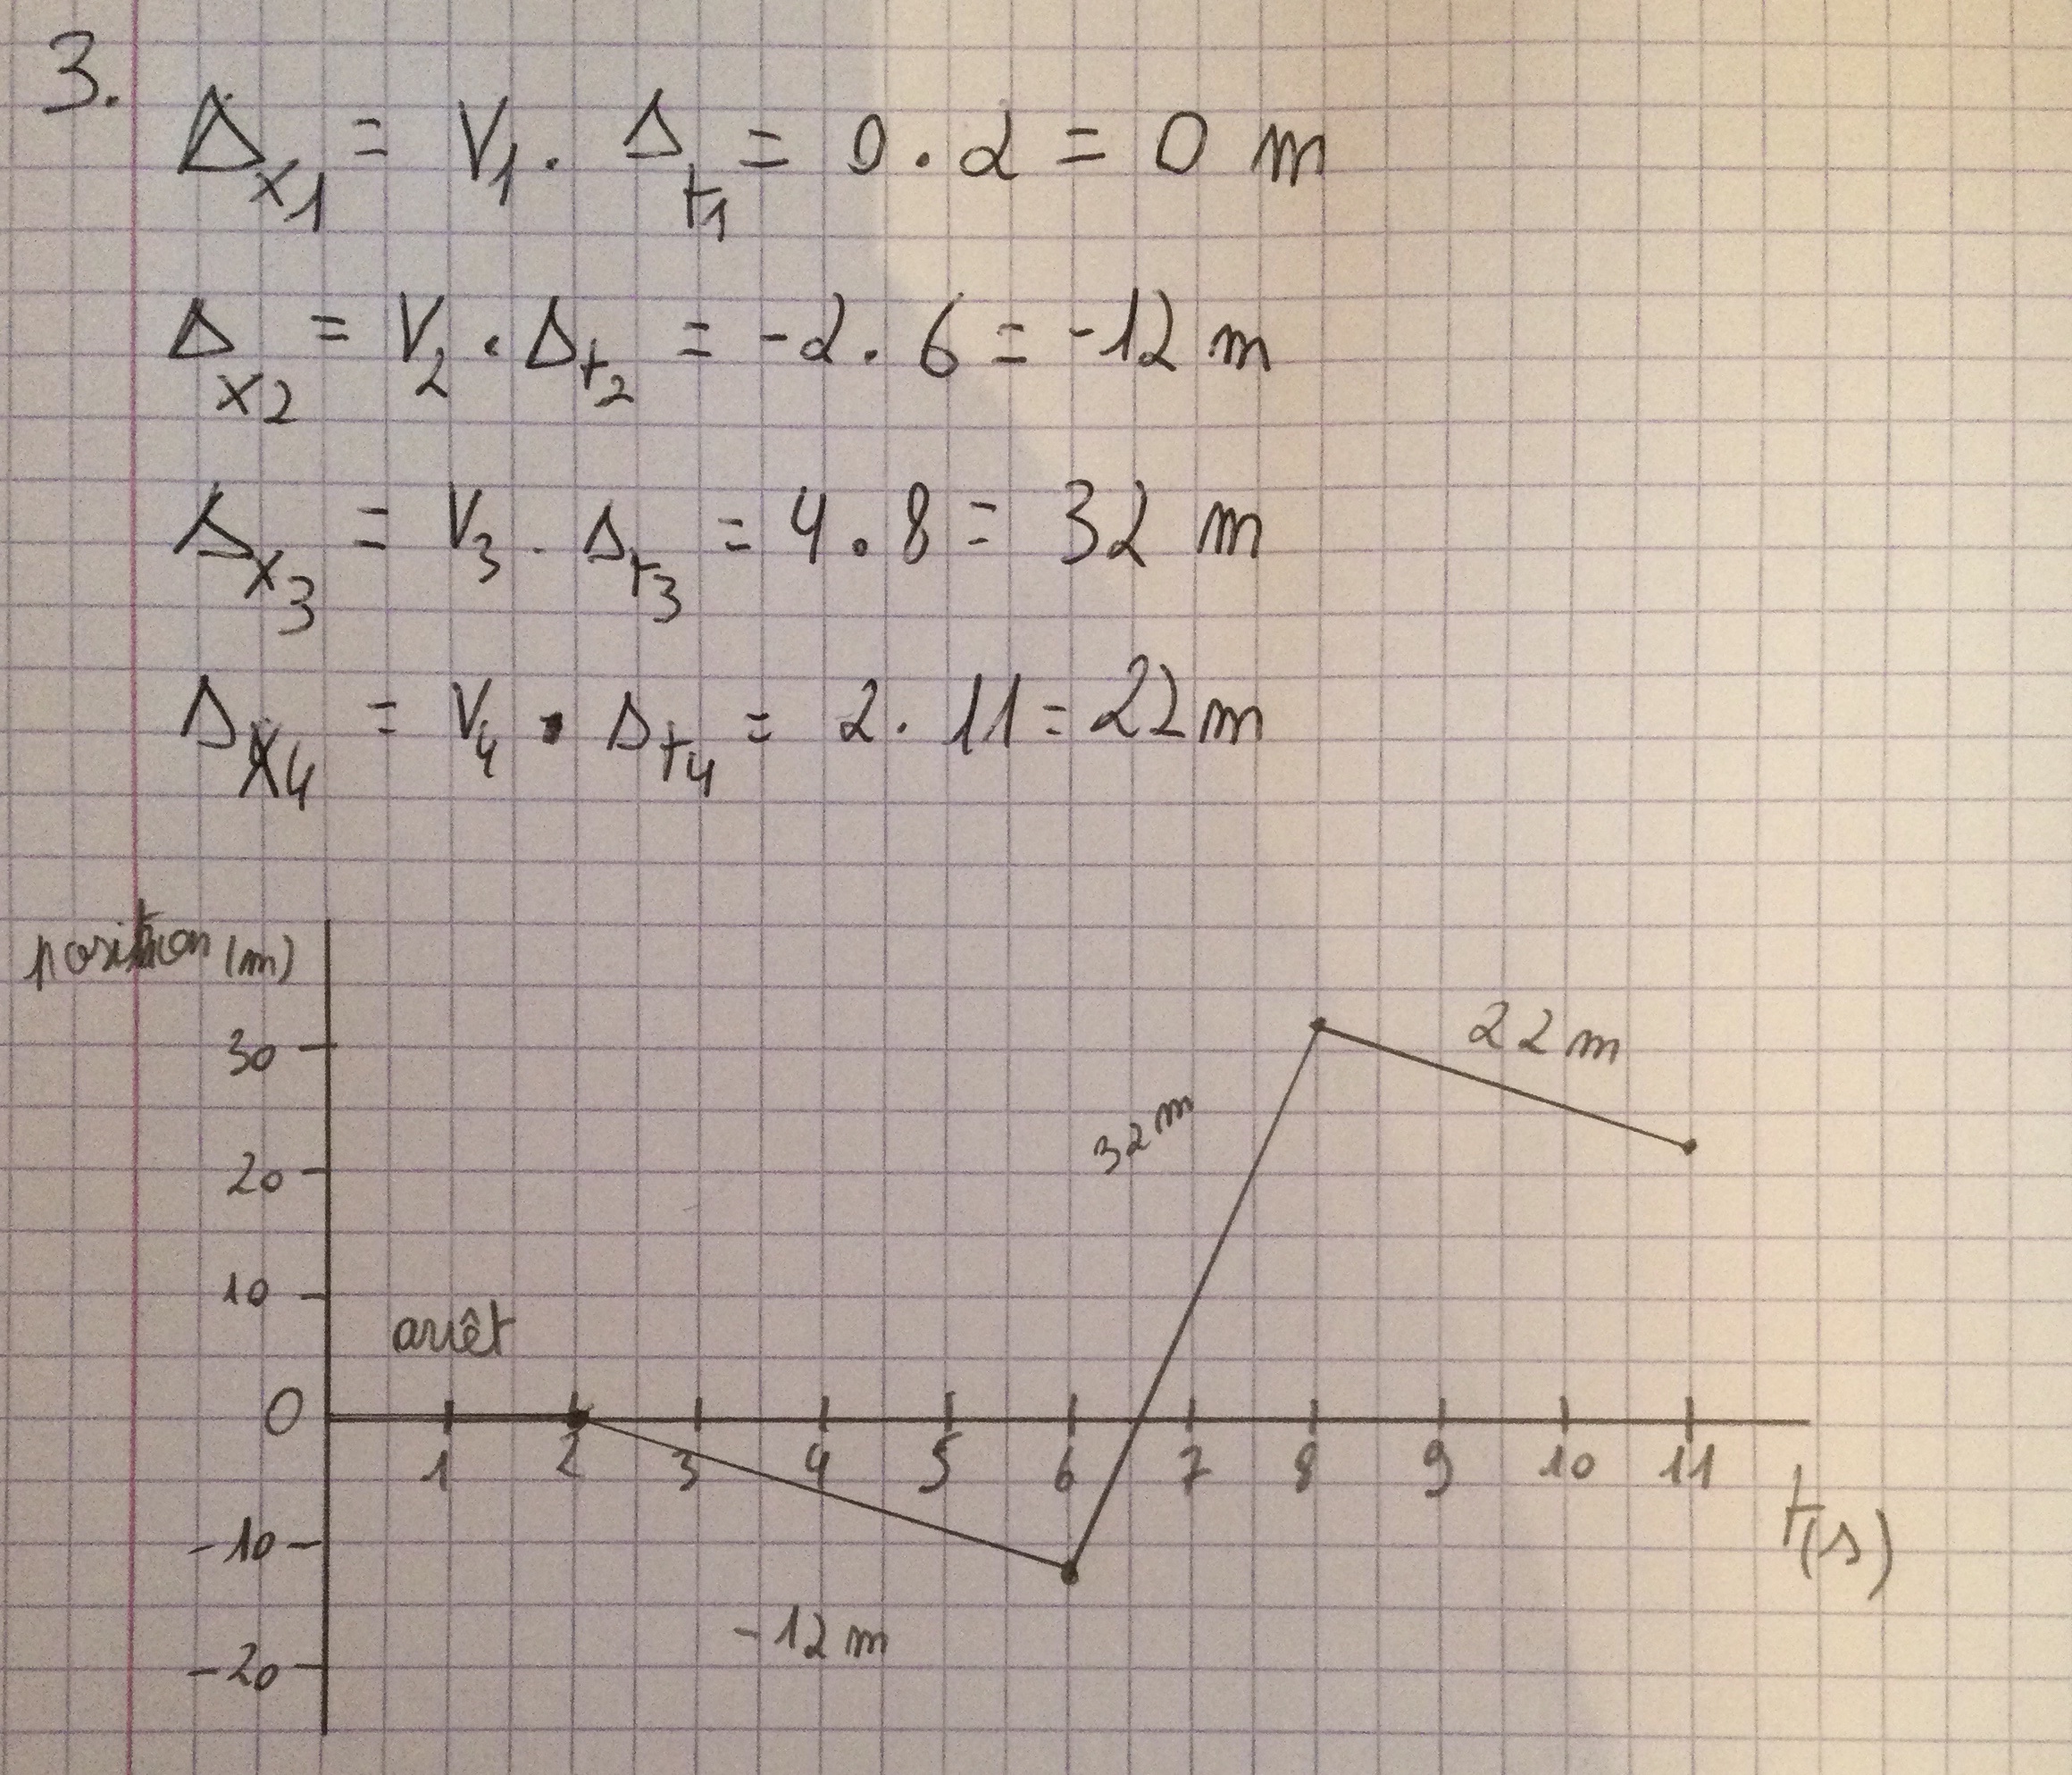 3.
Δx1 = V1 . Δt1 = 0 . 2 = 0 m
Δx2 = V2 . Δt2 = -2 . 6 = -12 m
Δx3 = V3 . Δt3 = 4 . 8 = 32 m
Δx4 = V4 . Δt4 = 2 . 11 = 22 m
position (m)
22 m
30
32 m
20
10
arrêt
0
1 2 3 4 5 6 7 8 9 10 11
t(s)
-10
-12 m
-20